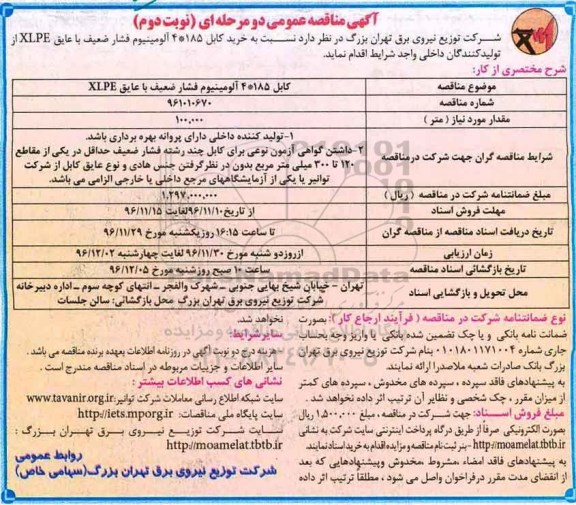 آگهی مناقصه عمومی دو مرحله ای (نوبت دوم)
شـــرکت توزیع نیروی برق تهران بزرگ در نظر دارد نسبت به خرید کابل ۱۸۵*۴ آلومینیوم فشار ضعیف با عایق XLPE از
تولیدکنندگان داخلی واجد شرایط اقدام نماید.
شرح مختصری از کار:
موضوع مناقصه
کابل ۱۸۵*۴ آلومینیوم فشار ضعیف با عایق XLPE
شماره مناقصه
۹۶۱۰۱۰۶۷۰
مقدار مورد نیاز ( متر )
۱۰۰,۰۰۰
شرایط مناقصه گران جهت شرکت در مناقصه
۱-تولید کننده داخلی دارای پروانه بهره برداری باشد.
۲-داشتن گواهی آزمون نوعی برای کابل چند رشته فشار ضعیف حداقل در یکی از مقاطع
۱۲۰ تا ۳۰۰ میلی متر مربع بدون در نظر گرفتن جنس هادی و نوع عایق کابل از شرکت
توانیر یا یکی از آزمایشگاههای مرجع داخلی یا خارجی الزامی می باشد.
مبلغ ضمانتنامه شرکت در مناقصه ( ریال )
۱,۲۹۷,۰۰۰,۰۰۰
مهلت فروش اسناد
از تاریخ ۹۶/۱۱/۱۰ لغایت ۹۶/۱۱/۱۵
تاریخ دریافت اسناد مناقصه از مناقصه گران
تا ساعت ۱۶:۱۵ روز یکشنبه مورخ ۹۶/۱۱/۲۹
زمان ارزیابی
از روز دو شنبه مورخ ۹۶/۱۱/۳۰ لغایت چهارشنبه ۹۶/۱۲/۰۲
تاریخ بازگشائی اسناد مناقصه
ساعت ۱۰ صبح روز شنبه مورخ ۹۶/۱۲/۰۵
محل تحویل و بازگشایی اسناد
تهران - خیابان شیخ بهایی جنوبی - شهرک والفجر - انتهای کوچه سوم - اداره دبیرخانه
شرکت توزیع نیروی برق تهران بزرگ محل بازگشائی: سالن جلسات
نوع ضمانتنامه شرکت در مناقصه ( فرآیند ارجاع کار ): بصورت
ضمانت نامه بانکی و یا چک تضمین شده بانکی یا واریز وجه بحساب
جاری شماره ۰۱۰۱۸۰۱۱۷۱۰۰۴ بنام شرکت توزیع نیروی برق تهران
بزرگ بانک صادرات شعبه ملاصدرا ارائه نمایند.
به پیشنهادهای فاقد سپرده ، سپرده های مخدوش ، سپرده های کمتر
از میزان مقرر ، چک شخصی و نظایر آن ترتیب اثر داده نخواهد شد .
مبلغ فروش اسناد: جهت شرکت در مناقصه ، مبلغ ۱,۵۰۰,۰۰۰ ریال
بصورت الکترونیکی صرفاً از طریق درگاه پرداخت اینترنتی سایت شرکت به نشانی
http://moamelat.tbtb.ir - بنر ثبت نام مناقصه و مزایده اقدام به خرید اسناد نمایند.
به پیشنهادهای فاقد امضاء، مشروط ، مخدوش و پیشنهادهایی که بعد از
انقضای مدت مقرر در فراخوان واصل می شود ، مطلقاً ترتیب اثر داده
نخواهد شد.
سایر شرایط:
هزینه درج دو نوبت آگهی در روزنامه اطلاعات بعهده برنده مناقصه می باشد .
سایر اطلاعات و جزئیات مربوطه در اسناد مناقصه مندرج است .
نشانی های کسب اطلاعات بیشتر :
سایت شبکه اطلاع رسانی معاملات شرکت توانیر: www.tavanir.org.ir
سایت پایگاه ملی مناقصات: http://iets.mporg.ir
سایت شرکت توزیع نیروی برق تهران بزرگ :
http://moamelat.tbtb.ir
روابط عمومی
شرکت توزیع نیروی برق تهران بزرگ(سهامی خاص)